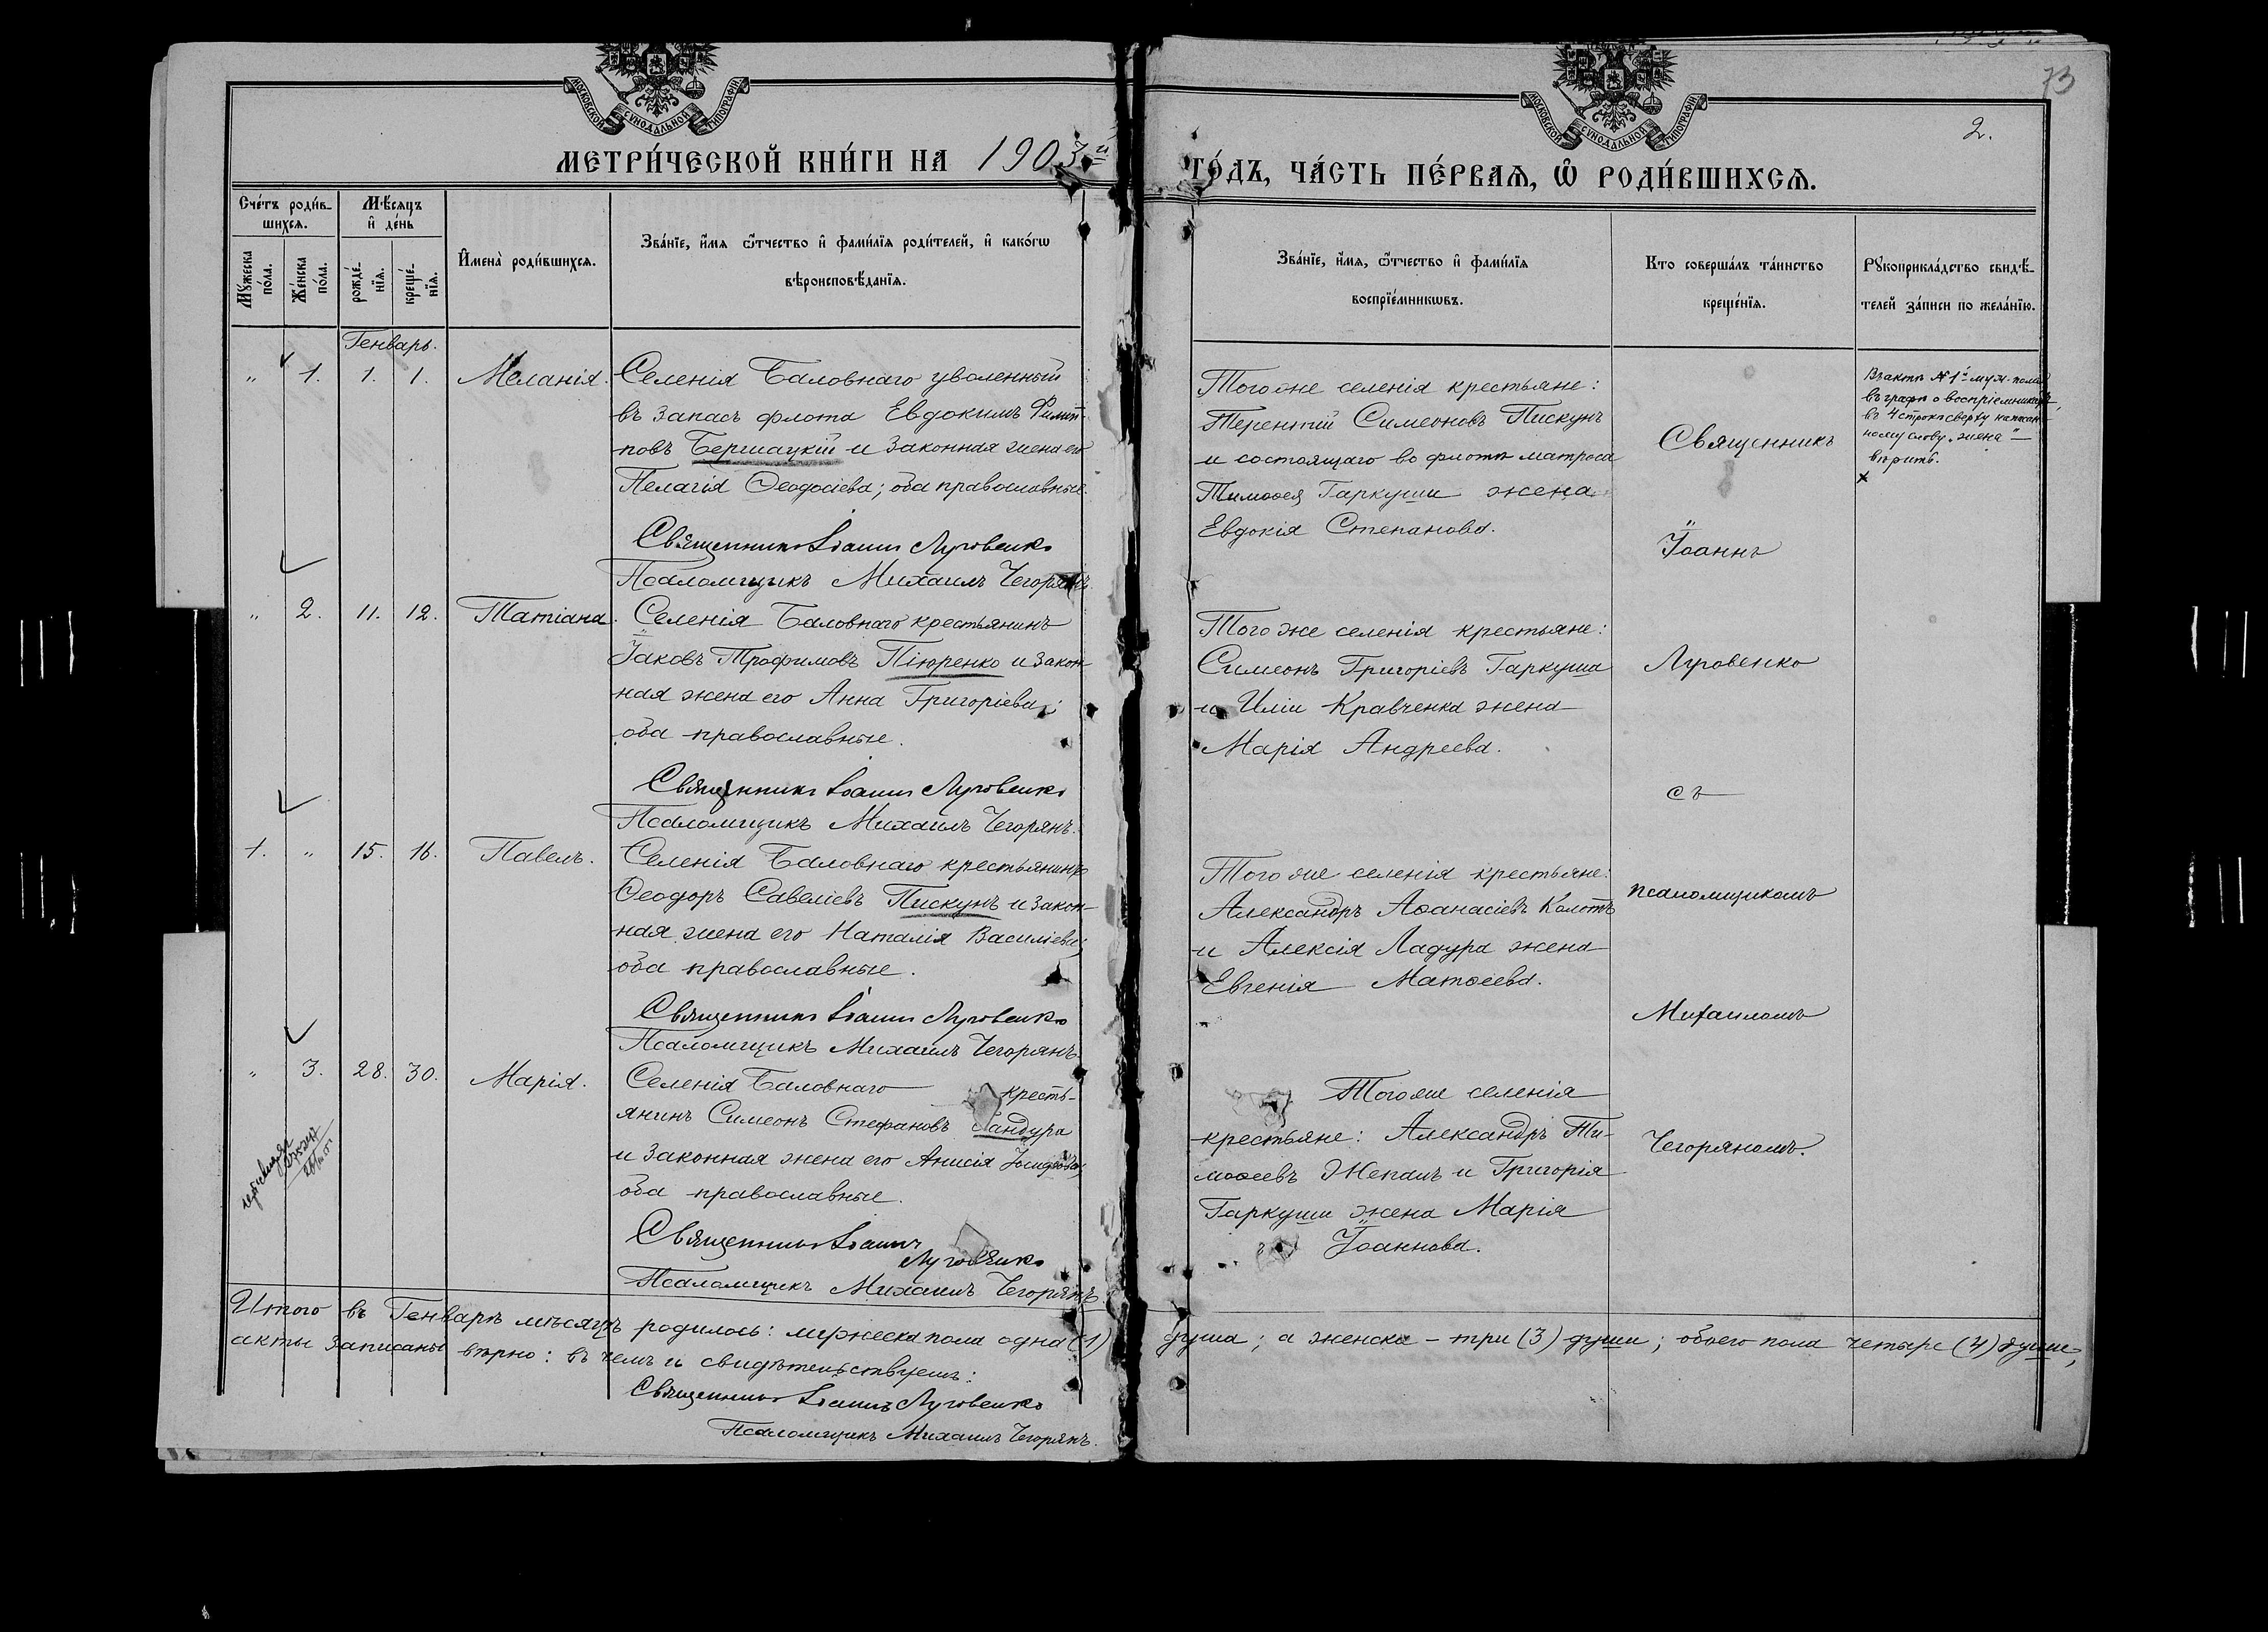 73
2.
МОСКОВСКОЙ СѴНОДАЛЬНОЙ ТИПОГРАФІИ
МОСКОВСКОЙ СѴНОДАЛЬНОЙ ТИПОГРАФІИ
МЕТРИ́ЧЕСКОЙ КНИ́ГИ НА 1903й
ГО́ДЪ, ЧА́СТЬ ПЕ́РВАѦ, Ѡ РОДИ́ВШИХСѦ.
Сче́тъ роди́в-
шихсѧ.
Мꙋ́жеска по́ла.
Же́нска по́ла.
Мѣ́сѧцъ
и҆ де́нь
рожде́-
нїѧ.
креще́-
нїѧ.
И҆мена̀ роди́вшихсѧ.
Зва́нїе, и҆́мѧ ѻ҆́тчество и҆ фами́лїѧ роди́телей, и҆ како́гѡ
вѣроисповѣ́данїѧ.
Зва́нїе, и҆́мѧ, ѻ҆́тчество и҆ фами́лїѧ
воспрїе́мникѡвъ.
Кто соверша́лъ та́инство
креще́нїѧ.
Рꙋкоприкла́дство свидѣ́-
телей за́писи по жела́нїю.
Генварь.
" 1. 1. 1. Меланія.
Селенія Баловнаго уволенный
въ запасъ флота Евдокимъ Филип-
повъ Бершацкій и законная жена его
Пелагія Ѳеодосіева; оба православные.
Священникъ Іоаннъ Луговенко
Псаломщикъ Михаилъ Чегорянъ.
Того же селенія крестьяне:
Терентій Симеоновъ Пискунъ
и состоящаго во флотѣ матроса
Тимоѳея Гаркуши жена
Евдокія Степанова.
Въ актѣ № 1й муж. пола
въ графѣ о воспріемникахъ,
въ 4 строкѣ сверху написан-
ному слову "жена" —
вѣрить.
" 2. 11. 12. Татіана.
Селенія Баловнаго крестьянинъ
Іаковъ Трофимовъ Піюренко и закон-
ная жена его Анна Григоріева;
оба православные.
Священникъ Іоаннъ Луговенко
Псаломщикъ Михаилъ Чегорянъ.
Того же селенія крестьяне:
Симеонъ Григоріевъ Гаркуша
и Иліи Кравченка жена
Марія Андреева.
1. " 15. 16. Павелъ.
Селенія Баловнаго крестьянинъ
Ѳеодоръ Савеліевъ Пискунъ и закон-
ная жена его Наталія Василіева;
оба православные.
Священникъ Іоаннъ Луговенко
Псаломщикъ Михаилъ Чегорянъ.
Того же селенія крестьяне:
Александръ Аѳанасіевъ Колотъ
и Алексія Ладура жена
Евгенія Матѳеева.
" 3. 28. 30. Марія.
Селенія Баловнаго кресть-
янинъ Симеонъ Стефановъ
и законная жена его Анисія
оба православные.
Священникъ Іоаннъ
Луговенко
Псаломщикъ Михаилъ Чегорянъ.
Того же селенія
крестьяне: Александръ Ти-
моѳеевъ Жепалъ и Григорія
Гаркуши жена Марія
Іоаннова.
Священникъ
Іоаннъ
Луговенко
съ
псаломщикомъ
Михаиломъ
Чегоряномъ.
Итого въ Генварѣ мѣсяцѣ родилось: мужеска пола одна (1) душа; а женска – три (3) души; обоего пола четыре (4) души;
акты записаны вѣрно: въ чемъ и свидѣтельствуемъ:
Священникъ Іоаннъ Луговенко
Псаломщикъ Михаилъ Чегорянъ.